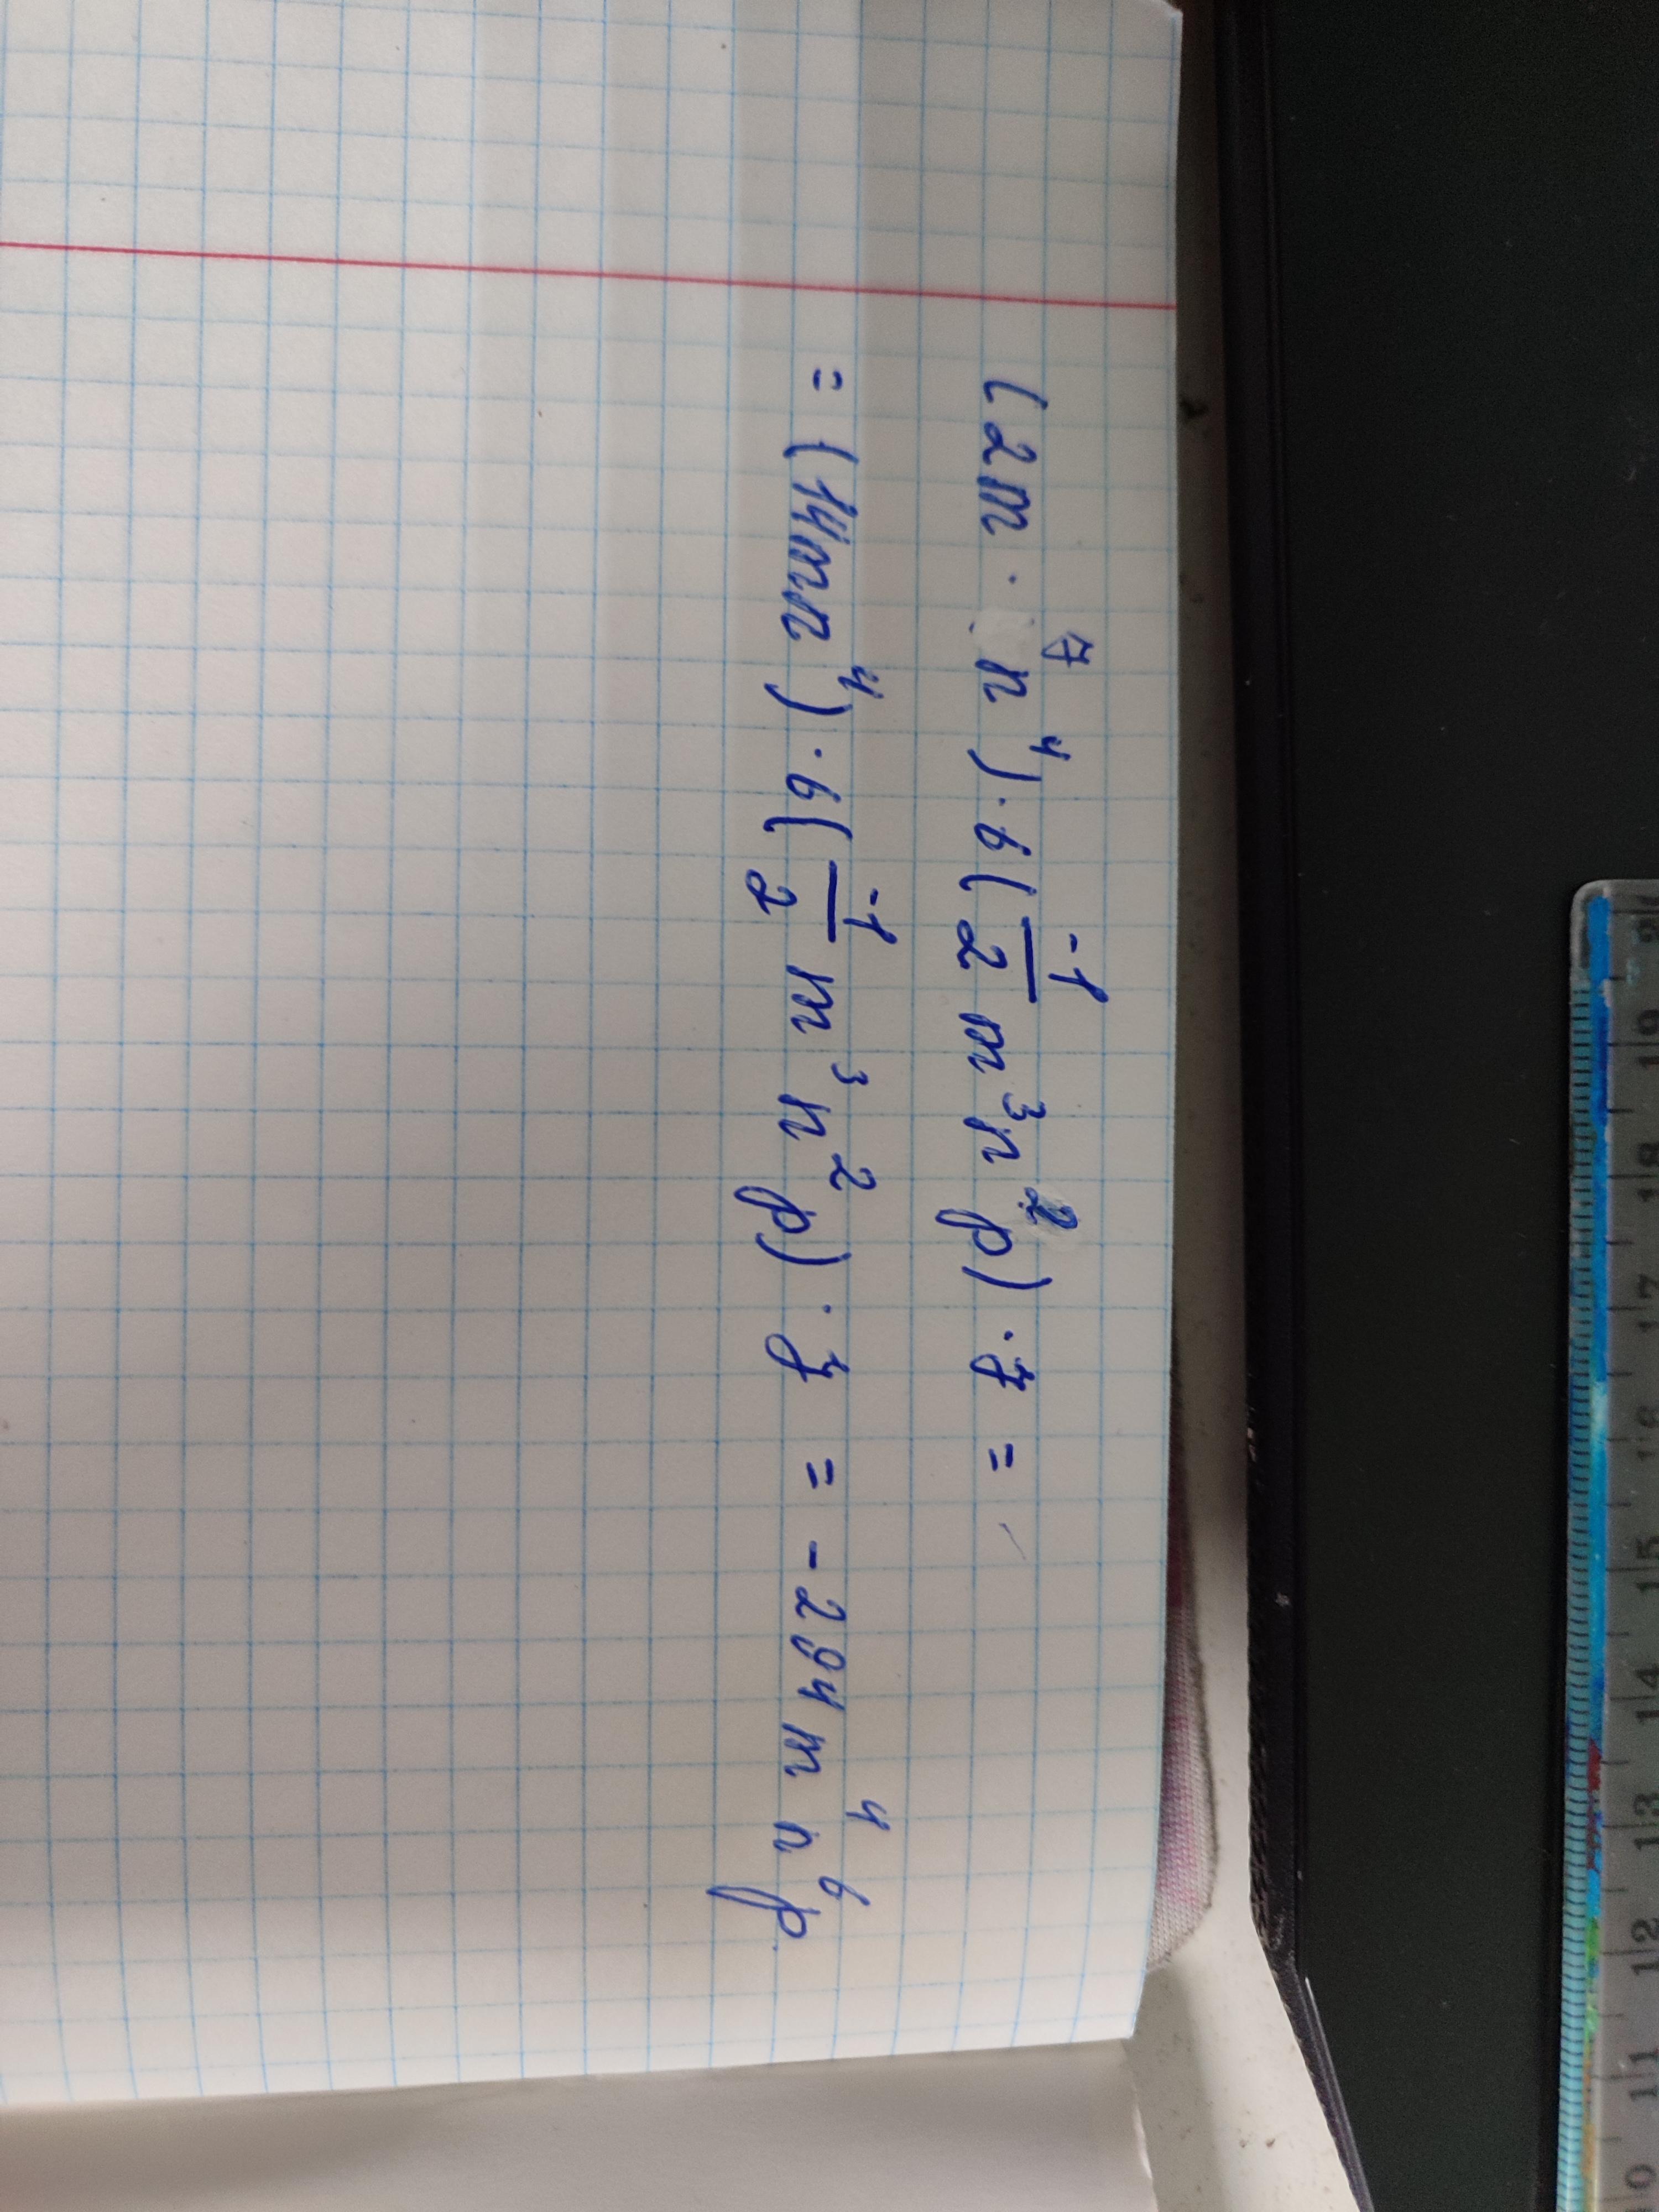 (2m · 7n⁴) · 6(-1/2 m³n²p) · 7 =
= (14mn⁴) · 6(-1/2 m³n²p) · 7 = -294m⁴n⁶p
20 19 18 17 16 15 14 13 12 11 10